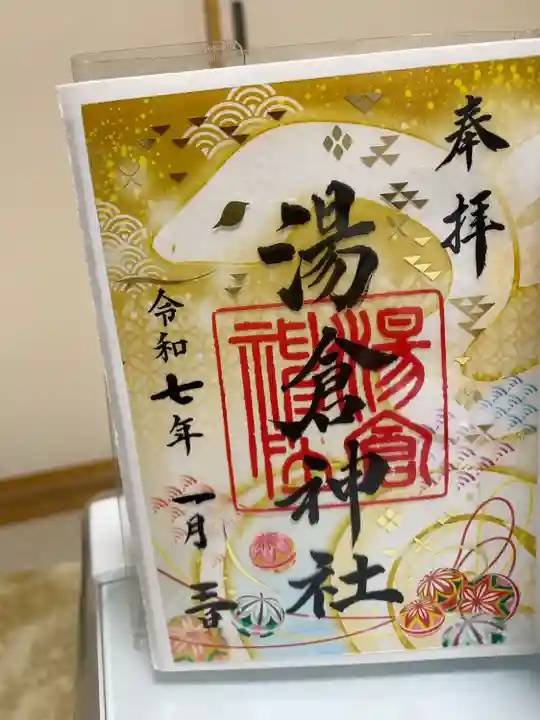 奉拝
湯倉神社
湯倉神社
令和七年一月三日